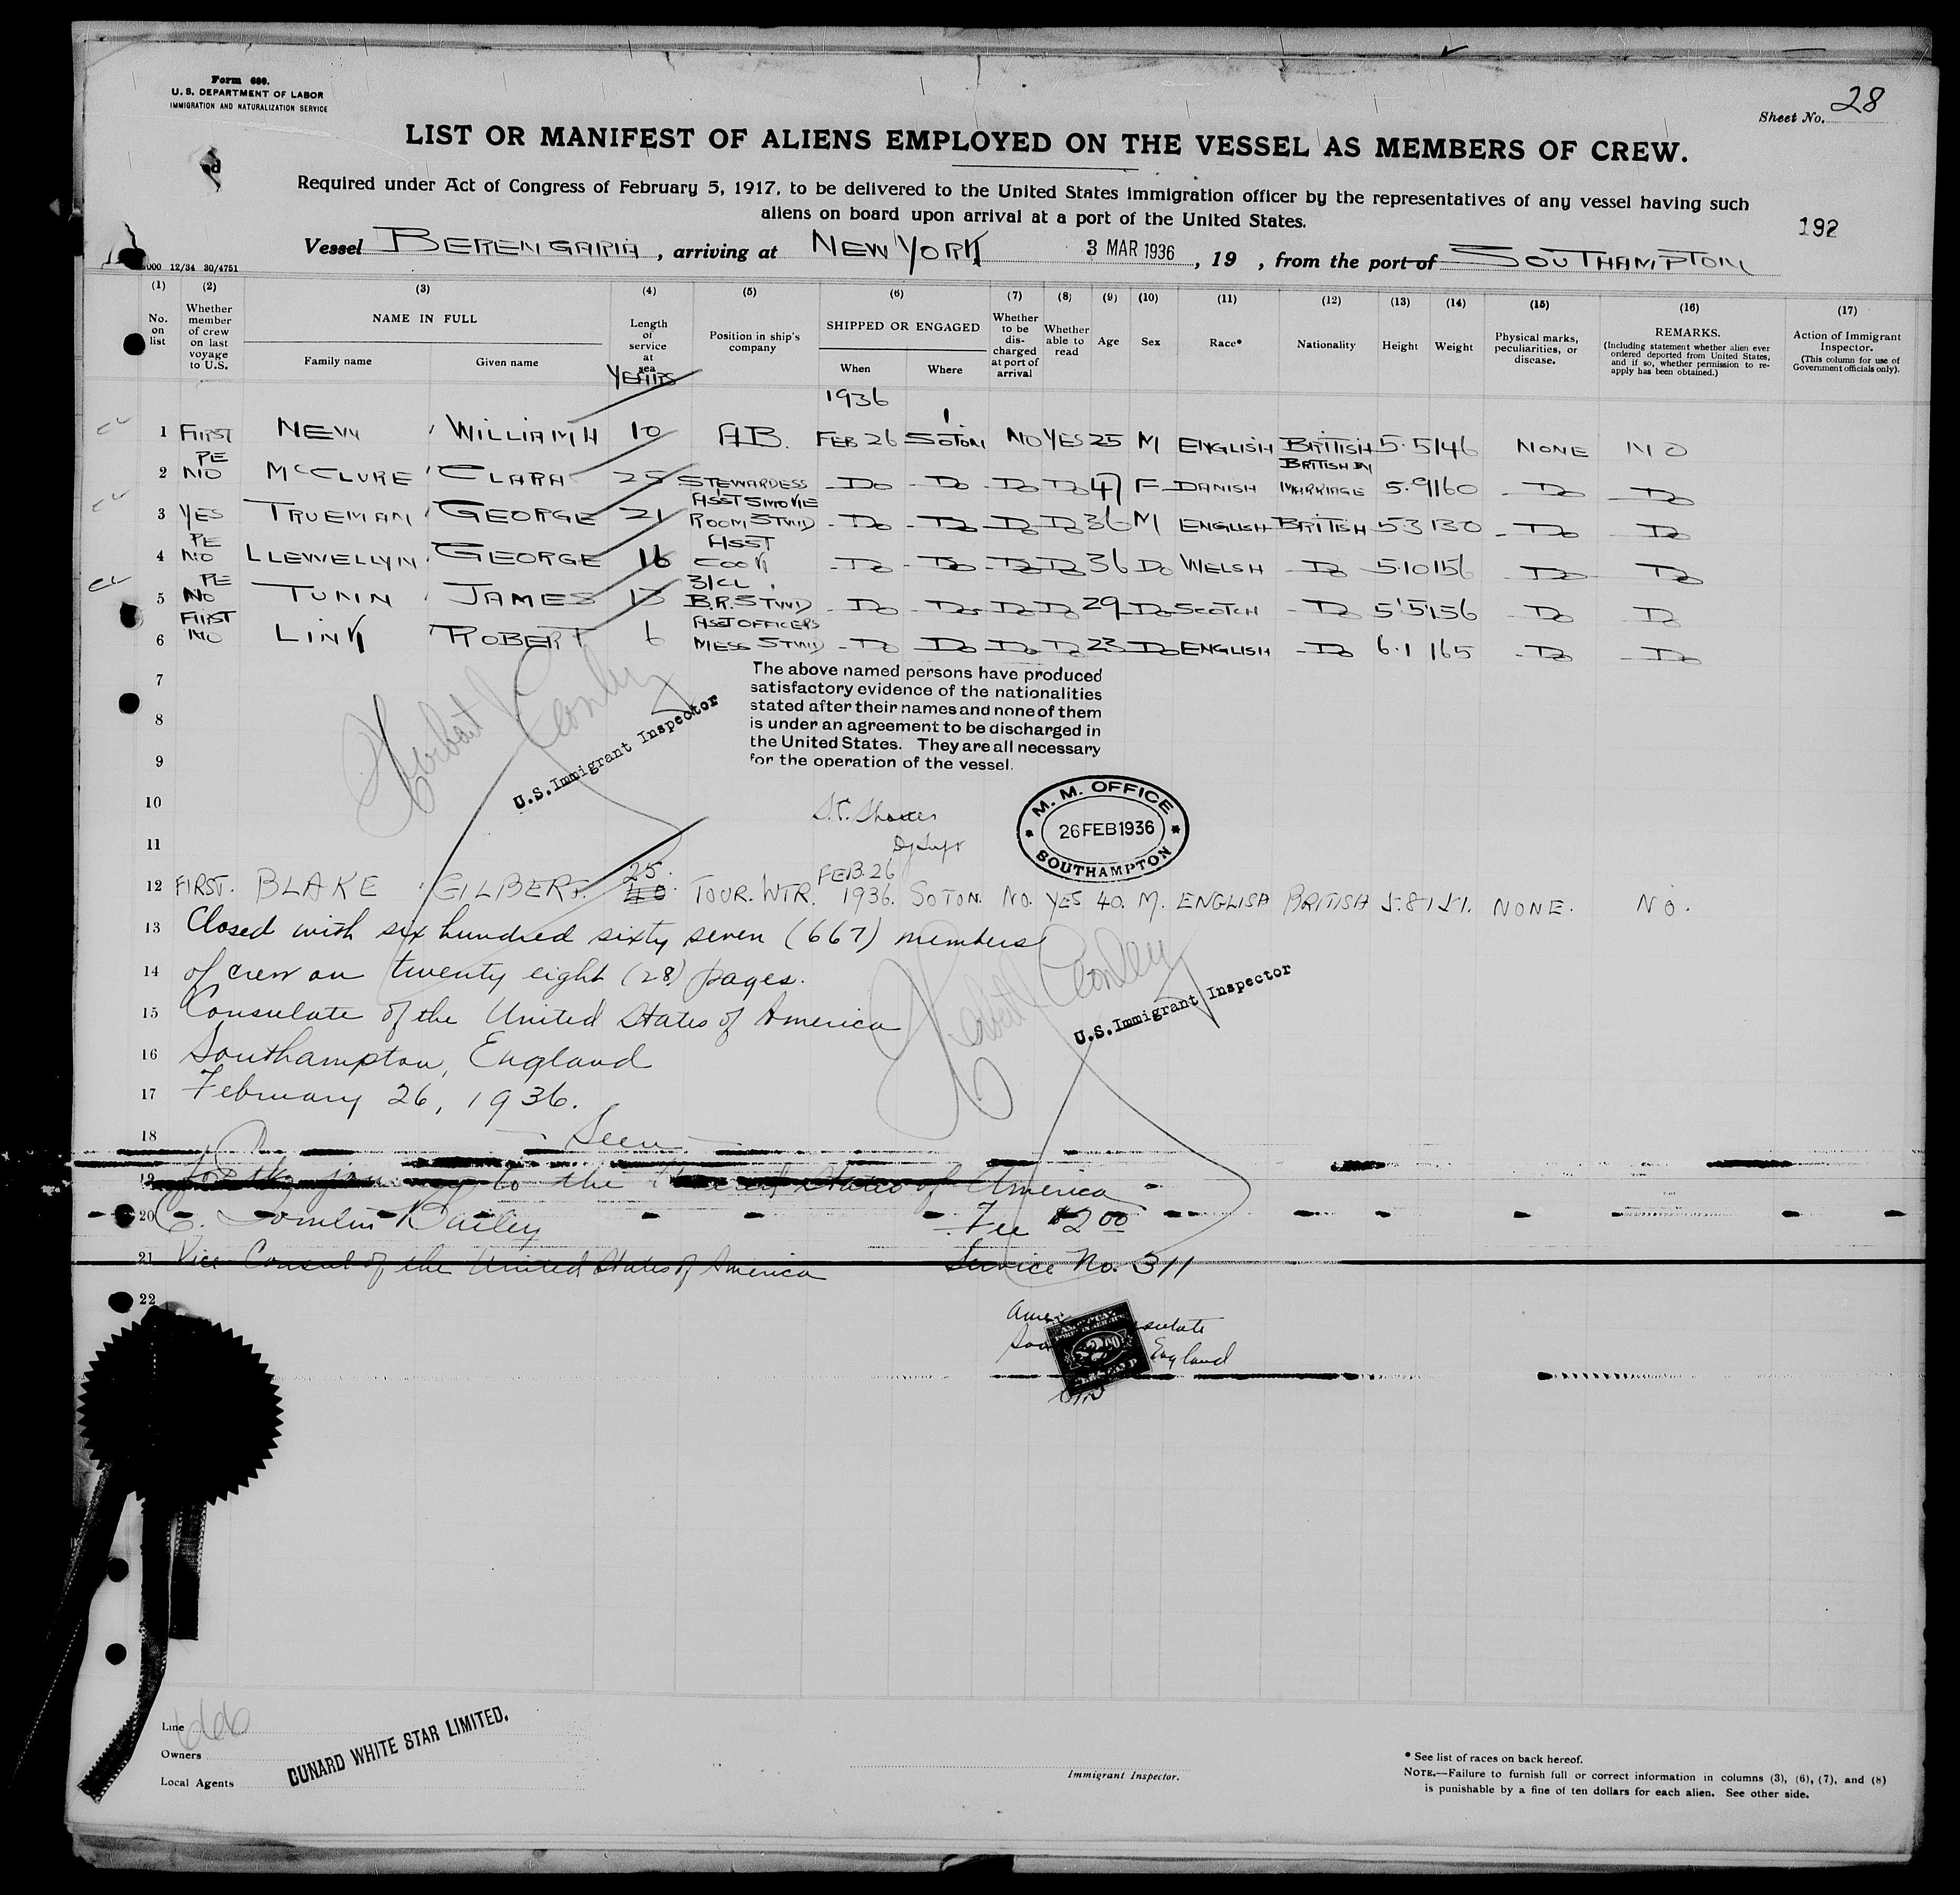 Form 680.
U. S. DEPARTMENT OF LABOR
IMMIGRATION AND NATURALIZATION SERVICE
Sheet No. 28
LIST OR MANIFEST OF ALIENS EMPLOYED ON THE VESSEL AS MEMBERS OF CREW.
Required under Act of Congress of February 5, 1917, to be delivered to the United States immigration officer by the representatives of any vessel having such
aliens on board upon arrival at a port of the United States.
192
Vessel BERENGARIA, arriving at NEW YORK 3 MAR 1936, 19 , from the port of SOUTHAMPTON
000 12/34 30/4751
(1) (2) (3) (4) (5) (6) (7) (8) (9) (10) (11) (12) (13) (14) (15) (16) (17)
No. on list
Whether member of crew on last voyage to U.S.
NAME IN FULL
Family name Given name
Length of service at sea
YEARS
Position in ship's company
SHIPPED OR ENGAGED
When Where
Whether to be discharged at port of arrival
Whether able to read
Age
Sex
Race*
Nationality
Height
Weight
Physical marks, peculiarities, or disease.
REMARKS.
(Including statement whether alien ever ordered deported from United States, and if so, whether permission to reapply has been obtained.)
Action of Immigrant Inspector.
(This column for use of Government officials only).
1936
1 FIRST NEW WILLIAM H 10 A.B. FEB 26 SOTON NO YES 25 M ENGLISH BRITISH 5.5 146 NONE NO
2 PE NO McCLURE CLARA 25 STEWARDESS Do Do Do Do 47 F DANISH BRITISH BY MARRIAGE 5.9 160 Do Do
3 YES TRUEMAN GEORGE 21 ASST SMOKE ROOM STWD Do Do Do Do 36 M ENGLISH BRITISH 5.3 130 Do Do
4 PE NO LLEWELLYN GEORGE 16 ASST COOK Do Do Do Do 36 Do WELSH Do 5.10 156 Do Do
5 PE NO TUNN JAMES 13 3/CL B.R. STWD Do Do Do Do 29 Do SCOTCH Do 5'5 156 Do Do
6 FIRST NO LINK ROBERT 6 ASST OFFICERS MESS STWD Do Do Do Do 23 Do ENGLISH Do 6.1 165 Do Do
7
8
9
The above named persons have produced
satisfactory evidence of the nationalities
stated after their names and none of them
is under an agreement to be discharged in
the United States. They are all necessary
for the operation of the vessel.
U.S. Immigrant Inspector
10
11
M. M. OFFICE
26 FEB 1936
SOUTHAMPTON
12 FIRST. BLAKE GILBERT. 25. 40 TOUR. WTR. FEB. 26 1936. SOTON. NO. YES 40. M. ENGLISH BRITISH 5.8 151. NONE. NO.
13 Closed with six hundred sixty seven (667) members
14 of crew on twenty eight (28) pages.
15 Consulate of the United States of America
16 Southampton, England
17 February 26, 1936.
U.S. Immigrant Inspector
18 Seen
19 for the journey to the United States of America
20 Bailey Fee $2.00
21 Vice Consul of the United States of America Service No. 311
22
England
$2.00
666
Line
Owners
Local Agents
CUNARD WHITE STAR LIMITED.
Immigrant Inspector.
* See list of races on back hereof.
NOTE.—Failure to furnish full or correct information in columns (3), (6), (7), and (8)
is punishable by a fine of ten dollars for each alien. See other side.